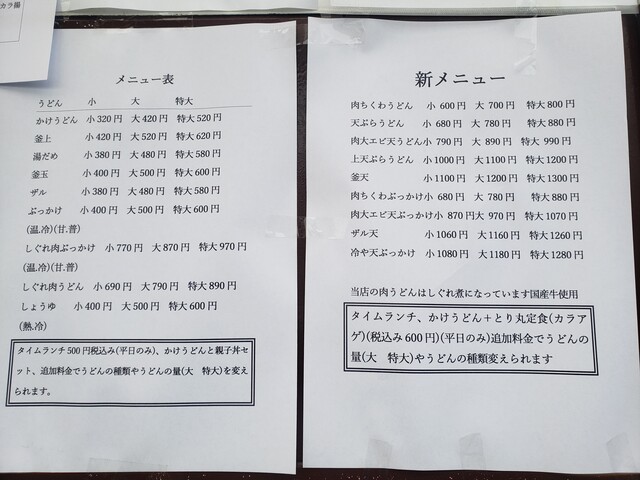 カラ揚
メニュー表
うどん 小 大 特大
かけうどん 小320円 大420円 特大520円
釜上 小420円 大520円 特大620円
湯だめ 小380円 大480円 特大580円
釜玉 小400円 大500円 特大600円
ザル 小380円 大480円 特大580円
ぶっかけ 小400円 大500円 特大600円
(温,冷)(甘.普)
しぐれ肉ぶっかけ 小770円 大870円 特大970円
(温.冷)(甘.普)
しぐれ肉うどん 小690円 大790円 特大890円
しょうゆ 小400円 大500円 特大600円
(熱.冷)
タイムランチ500円税込み(平日のみ)、かけうどんと親子丼セ
ット、追加料金でうどんの種類やうどんの量(大 特大)を変え
られます。
新メニュー
肉ちくわうどん 小600円 大700円 特大800円
天ぷらうどん 小680円 大780円 特大880円
肉大エビ天うどん小790円 大890円 特大990円
上天ぷらうどん 小1000円 大1100円 特大1200円
釜天 小1100円 大1200円 特大1300円
肉ちくわぶっかけ小680円 大780円 特大880円
肉大エビ天ぶっかけ小870円大970円 特大1070円
ザル天 小1060円 大1160円 特大1260円
冷や天ぶっかけ 小1080円 大1180円 特大1280円
当店の肉うどんはしぐれ煮になっています国産牛使用
タイムランチ、かけうどん＋とり丸定食(カラア
ゲ)(税込み600円)(平日のみ)追加料金でうどんの
量(大 特大)やうどんの種類変えられます